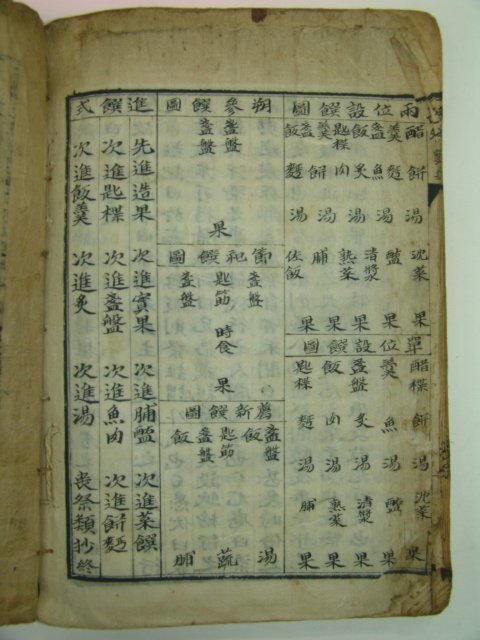 兩位設饌圖
醋 羹 盞盤 飯 匙楪 羹 盞盤 飯
餠 麵 魚 炙 肉 餠 麵
湯 湯 湯 湯 湯
沈菜 醢 淸漿 熟菜 脯 佐飯
果 果 果 果 果 果
單位設饌圖
醋楪 羹 盞盤 飯 匙楪
餠 魚 炙 肉 麵
湯 湯 湯 湯 湯
沈菜 醢 淸漿 熟菜 脯
果 果 果 果 果
朔參饌圖
盞盤 盞盤
果
節祀饌圖
盞盤 匙筯 盞盤
時食
果
薦新饌圖
盞盤 飯 匙筯 盞盤 飯
湯 蔬 脯
進饌式
先進造果 次進實果 次進脯醢 次進菜饌
次進匙楪 次進盞盤 次進魚肉 次進餠麵
次進飯羹 次進炙 次進湯 喪祭類抄終